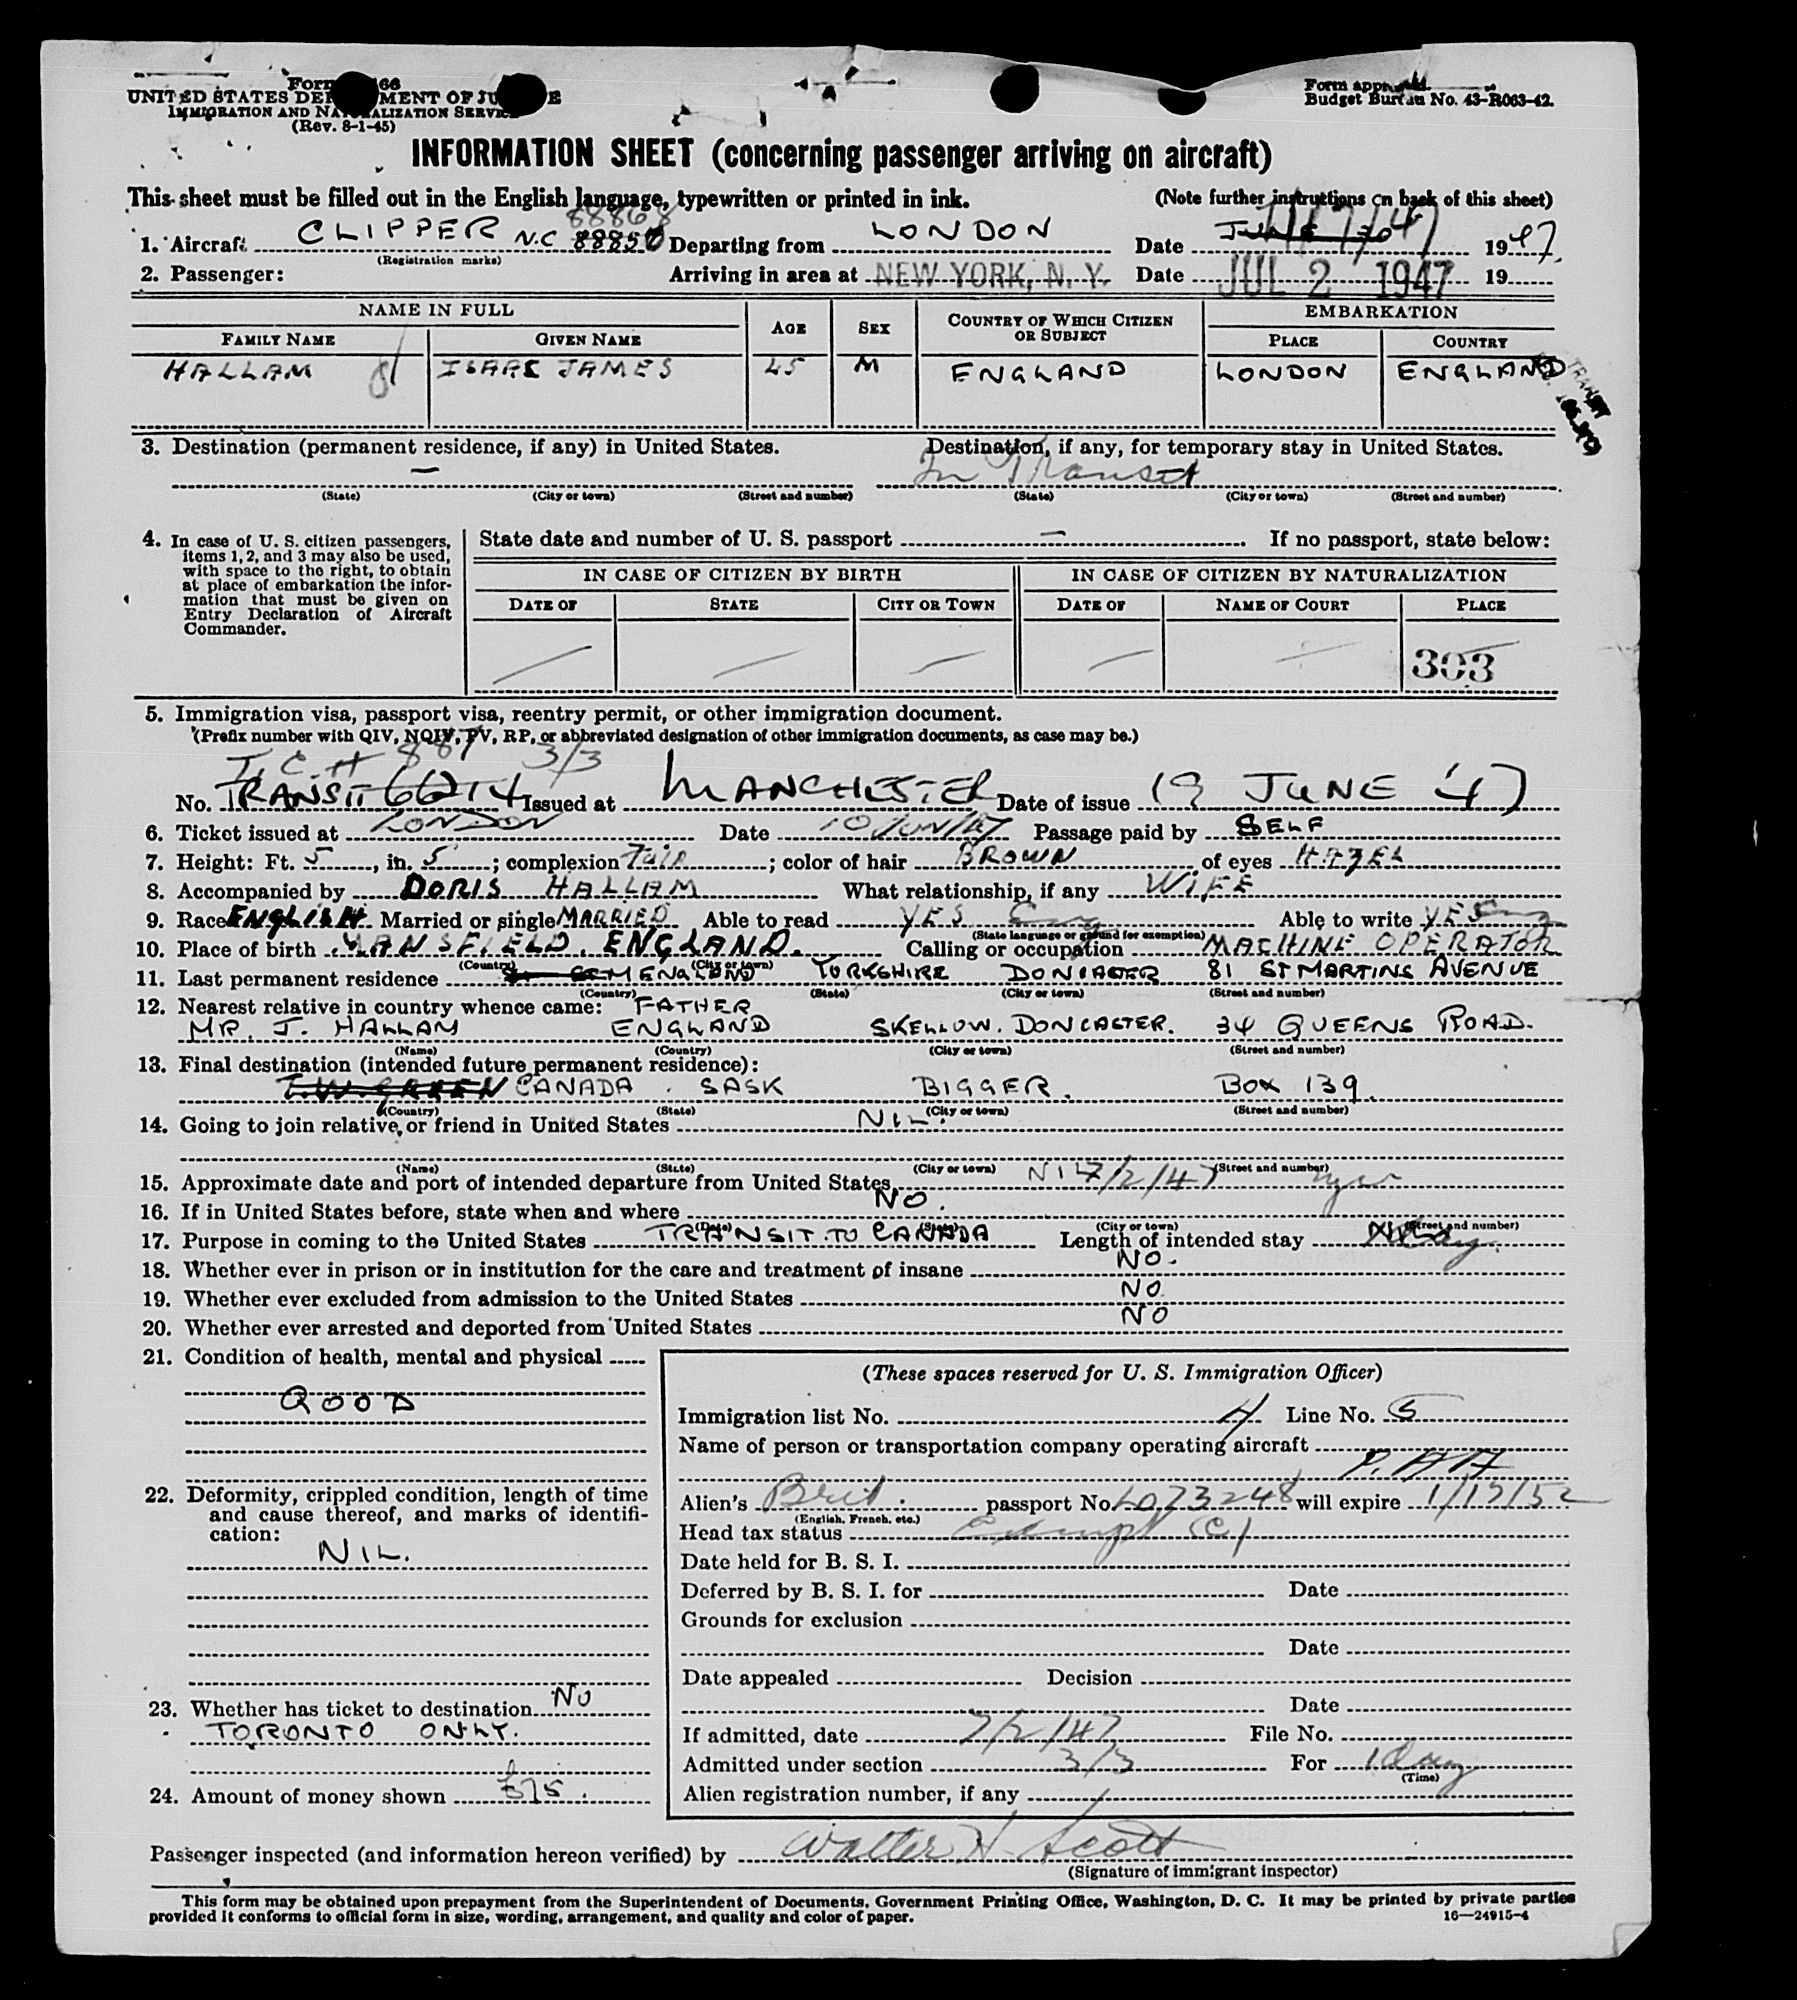 UNITED STATES DEPARTMENT OF JUSTICE
IMMIGRATION AND NATURALIZATION SERVICE
(Rev. 8-1-45)
Form approved.
Budget Bureau No. 43-R063-42.
INFORMATION SHEET (concerning passenger arriving on aircraft)
This sheet must be filled out in the English language, typewritten or printed in ink. (Note further instructions on back of this sheet)
88868
1. Aircraft CLIPPER N.C 88850 Departing from LONDON Date JUNE 30 1/7/47 1947.
(Registration marks)
2. Passenger: Arriving in area at NEW YORK, N. Y. Date JUL 2 1947 19
NAME IN FULL AGE SEX COUNTRY OF WHICH CITIZEN OR SUBJECT EMBARKATION
FAMILY NAME GIVEN NAME PLACE COUNTRY
HALLAM ISAAC JAMES 45 M ENGLAND LONDON ENGLAND
TRANSIT
3. Destination (permanent residence, if any) in United States. Destination, if any, for temporary stay in United States.
— In Transit
(State) (City or town) (Street and number) (State) (City or town) (Street and number)
4. In case of U. S. citizen passengers, items 1, 2, and 3 may also be used, with space to the right, to obtain at place of embarkation the information that must be given on Entry Declaration of Aircraft Commander.
State date and number of U. S. passport — If no passport, state below:
IN CASE OF CITIZEN BY BIRTH IN CASE OF CITIZEN BY NATURALIZATION
DATE OF STATE CITY OR TOWN DATE OF NAME OF COURT PLACE
303
5. Immigration visa, passport visa, reentry permit, or other immigration document.
(Prefix number with QIV, NQIV, PV, RP, or abbreviated designation of other immigration documents, as case may be.)
T.C.# 887 3/3
No. TRANSIT 66214 Issued at MANCHESTER Date of issue 19 JUNE 47
6. Ticket issued at LONDON Date 10/JUN/47 Passage paid by SELF
7. Height: Ft. 5, in. 5; complexion Fair; color of hair BROWN of eyes HAZEL
8. Accompanied by DORIS HALLAM What relationship, if any WIFE
9. Race ENGLISH Married or single MARRIED Able to read YES Eng Able to write YES Eng
(State language or ground for exemption)
10. Place of birth MANSFIELD. ENGLAND. Calling or occupation MACHINE OPERATOR
(Country) (City or town)
11. Last permanent residence ENGLAND YORKSHIRE DONCASTER 81 ST MARTINS AVENUE
(Country) (State) (City or town) (Street and number)
12. Nearest relative in country whence came: FATHER
MR. J. HALLAM ENGLAND SKELLOW. DONCASTER. 34 QUEENS ROAD.
(Name) (Country) (City or town) (Street and number)
13. Final destination (intended future permanent residence):
CANADA. SASK BIGGER. BOX 139.
(Country) (State) (City or town) (Street and number)
14. Going to join relative, or friend in United States NIL.
(Name) (State) (City or town) (Street and number)
15. Approximate date and port of intended departure from United States NIL 7/2/47
16. If in United States before, state when and where NO.
(Date) (State) (City or town) (Street and number)
17. Purpose in coming to the United States TRANSIT TO CANADA Length of intended stay
18. Whether ever in prison or in institution for the care and treatment of insane NO.
19. Whether ever excluded from admission to the United States NO
20. Whether ever arrested and deported from United States NO
21. Condition of health, mental and physical
GOOD
22. Deformity, crippled condition, length of time and cause thereof, and marks of identification:
NIL.
23. Whether has ticket to destination NO
TORONTO ONLY.
24. Amount of money shown £75.
(These spaces reserved for U. S. Immigration Officer)
Immigration list No. 4 Line No. 5
Name of person or transportation company operating aircraft
P.A.A
Alien's Brit. passport No. L073248 will expire 1/17/52
(English, French, etc.)
Head tax status Exempt (C)
Date held for B. S. I.
Deferred by B. S. I. for Date
Grounds for exclusion
Date
Date appealed Decision
Date
If admitted, date 7/2/47 File No.
Admitted under section 3/3 For 1 day
(Time)
Alien registration number, if any
Passenger inspected (and information hereon verified) by Walter H. Scott
(Signature of immigrant inspector)
This form may be obtained upon prepayment from the Superintendent of Documents, Government Printing Office, Washington, D. C. It may be printed by private parties
provided it conforms to official form in size, wording, arrangement, and quality and color of paper. 16—24915-4